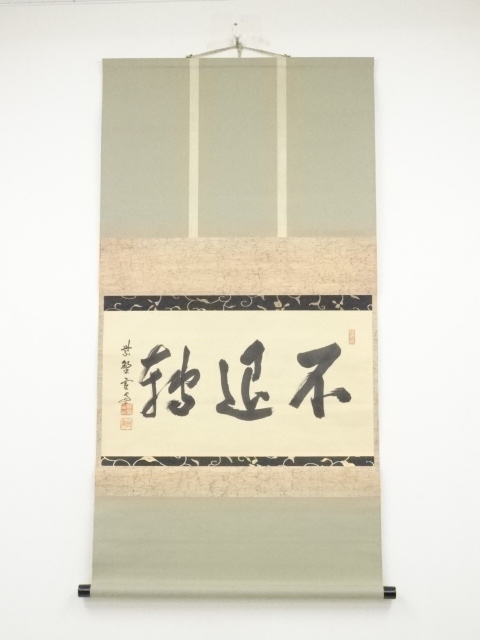 不退轉
紫野